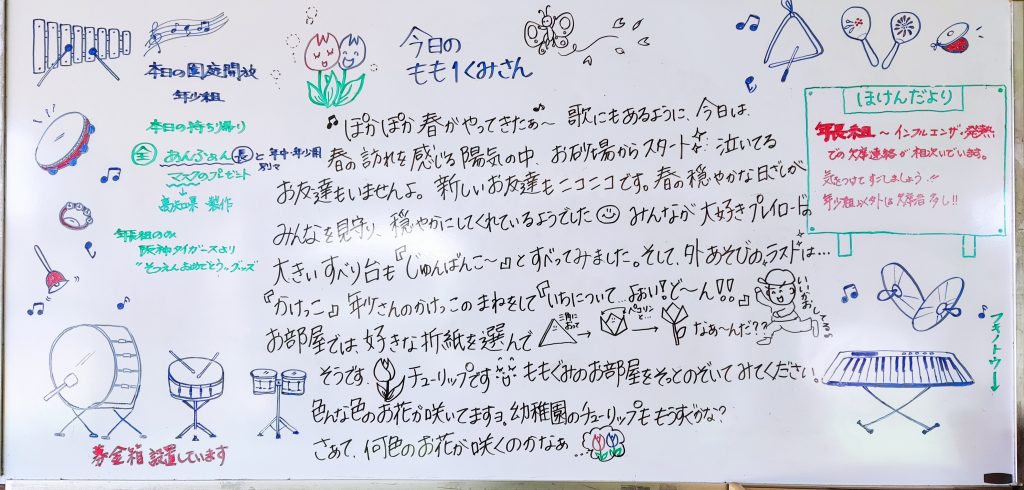 本日の園庭開放
年少組
本日の持ち帰り
全 あんふぁん 長と年中・年少園別々
マスクのプレゼント
高知県 製作
年長組のみ
阪神タイガースより
"そつえんおめでとう"グッズ
募金箱設置しています
今日の
もも1くみさん
ぽかぽか春がやってきたぁ〜 歌にもあるように、今日は、
春の訪れを感じる陽気の中、お砂場からスタート 泣いてる
お友達もいませんよ。新しいお友達もニコニコです。春の穏やかな日ざしが
みんなを見守り、穏やかにしてくれているようでした みんなが大好きプレイロードの
大きいすべり台も『じゅんばんこ〜』とすべってみました。そして、外あそびのラストは…
『かけっこ』年少さんのかけっこのまねをして『いちについて…よぉい!ど〜ん!!』
いいかおしてるっ
お部屋では、好きな折紙を選んで 三角におって → パコリンと… → なぁ〜んだ??
そうです チューリップです ももぐみのお部屋をそっとのぞいてみてください。
色んな色のお花が咲いてますョ。幼稚園のチューリップももうすぐかな?
さぁて、何色のお花が咲くのかなぁ…
ほけんだより
年長組〜インフルエンザ・発熱
での欠席連絡が相次いでいます。
気をつけてすごしましょう!!
年少組さん外は欠席者多し!!
フキノトウ→